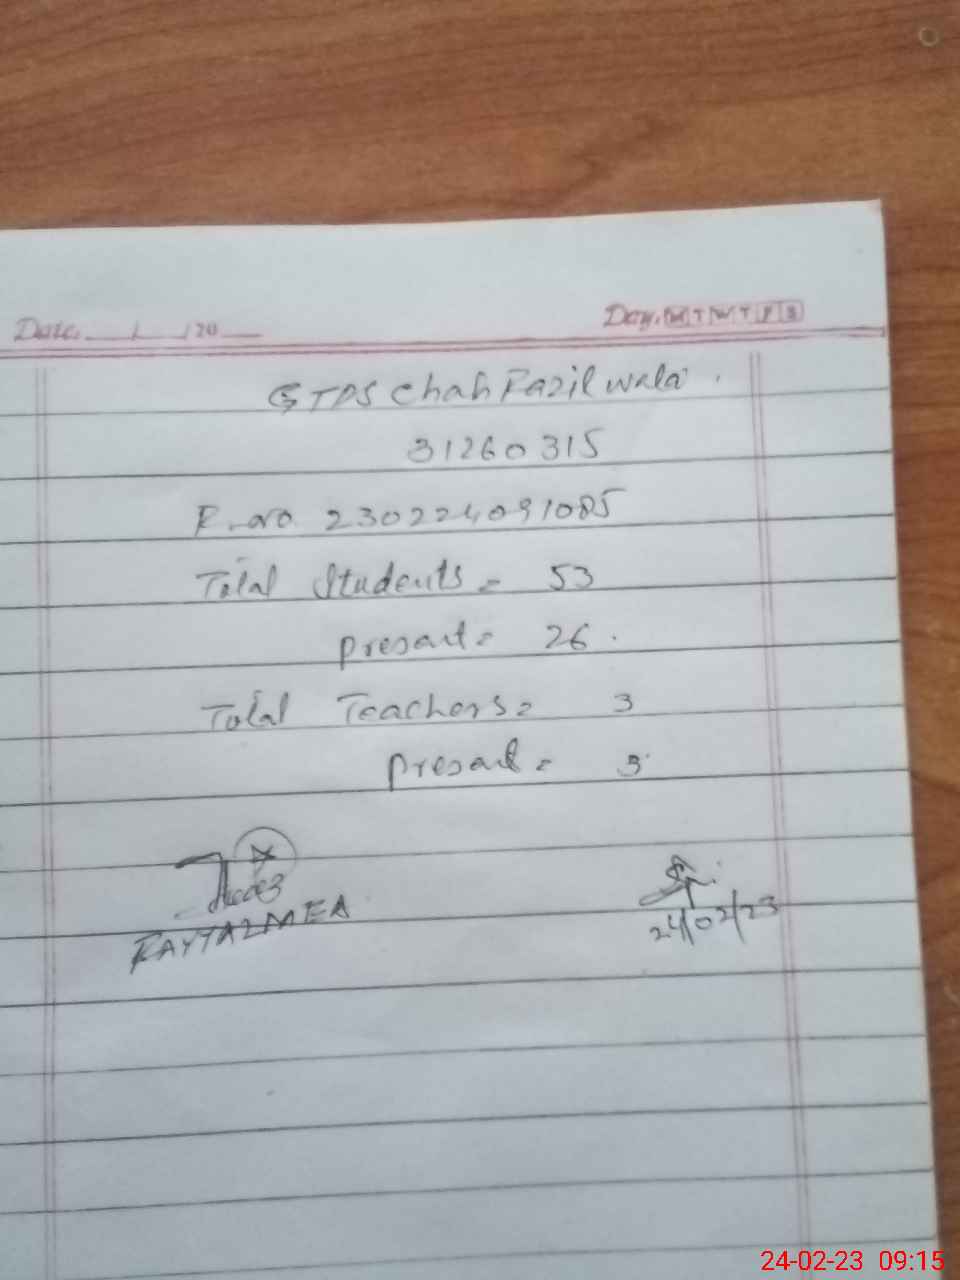 Date. / /20
Day. M T W T F S
GTPS Chah Fazil wala.
31260315
R.no 230224091085
Total Students = 53
Present = 26.
Total Teachers = 3
Present = 3
24/02/23
24-02-23 09:15